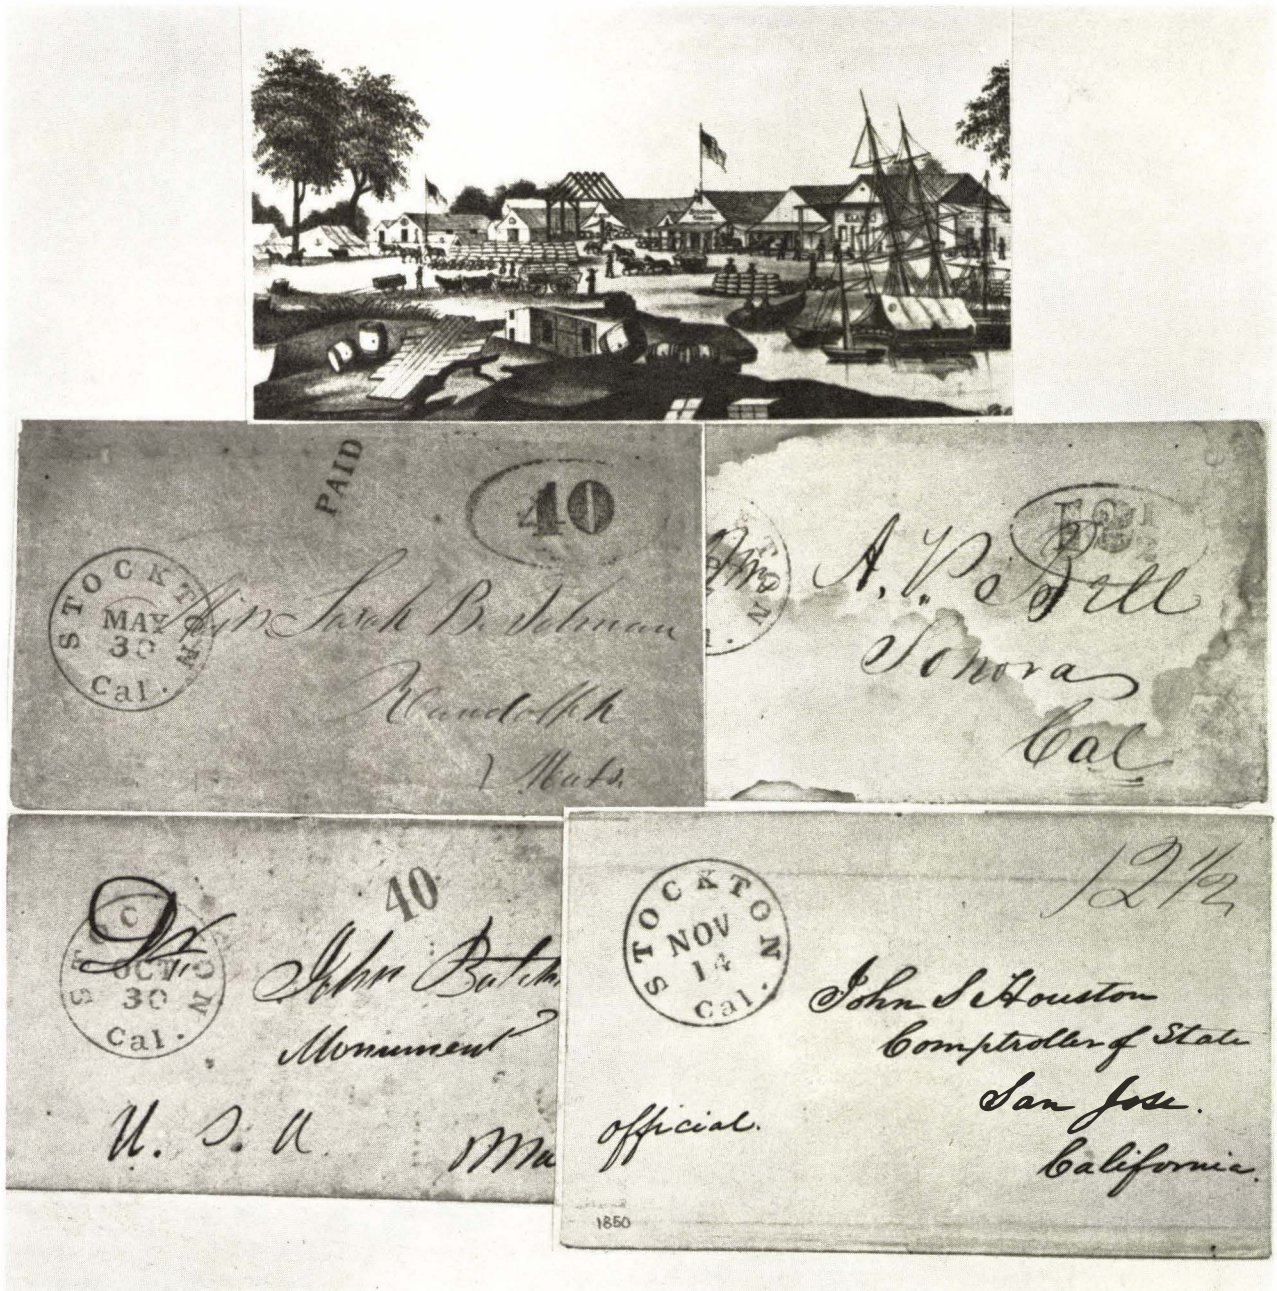 PAID
40
STOCKTON
MAY
30
Cal.
Miss Sarah B. Tolman
Randolph
Mass.
12 1/2
TON
A. P.
Sonora
Cal
40
STOCKTON
OCT
30
Cal.
Dr. John
Monument
U. S. A
Ma
STOCKTON
NOV
14
Cal.
12 1/2
John S Houston
Comptroller of State
San Jose.
California.
official.
1850